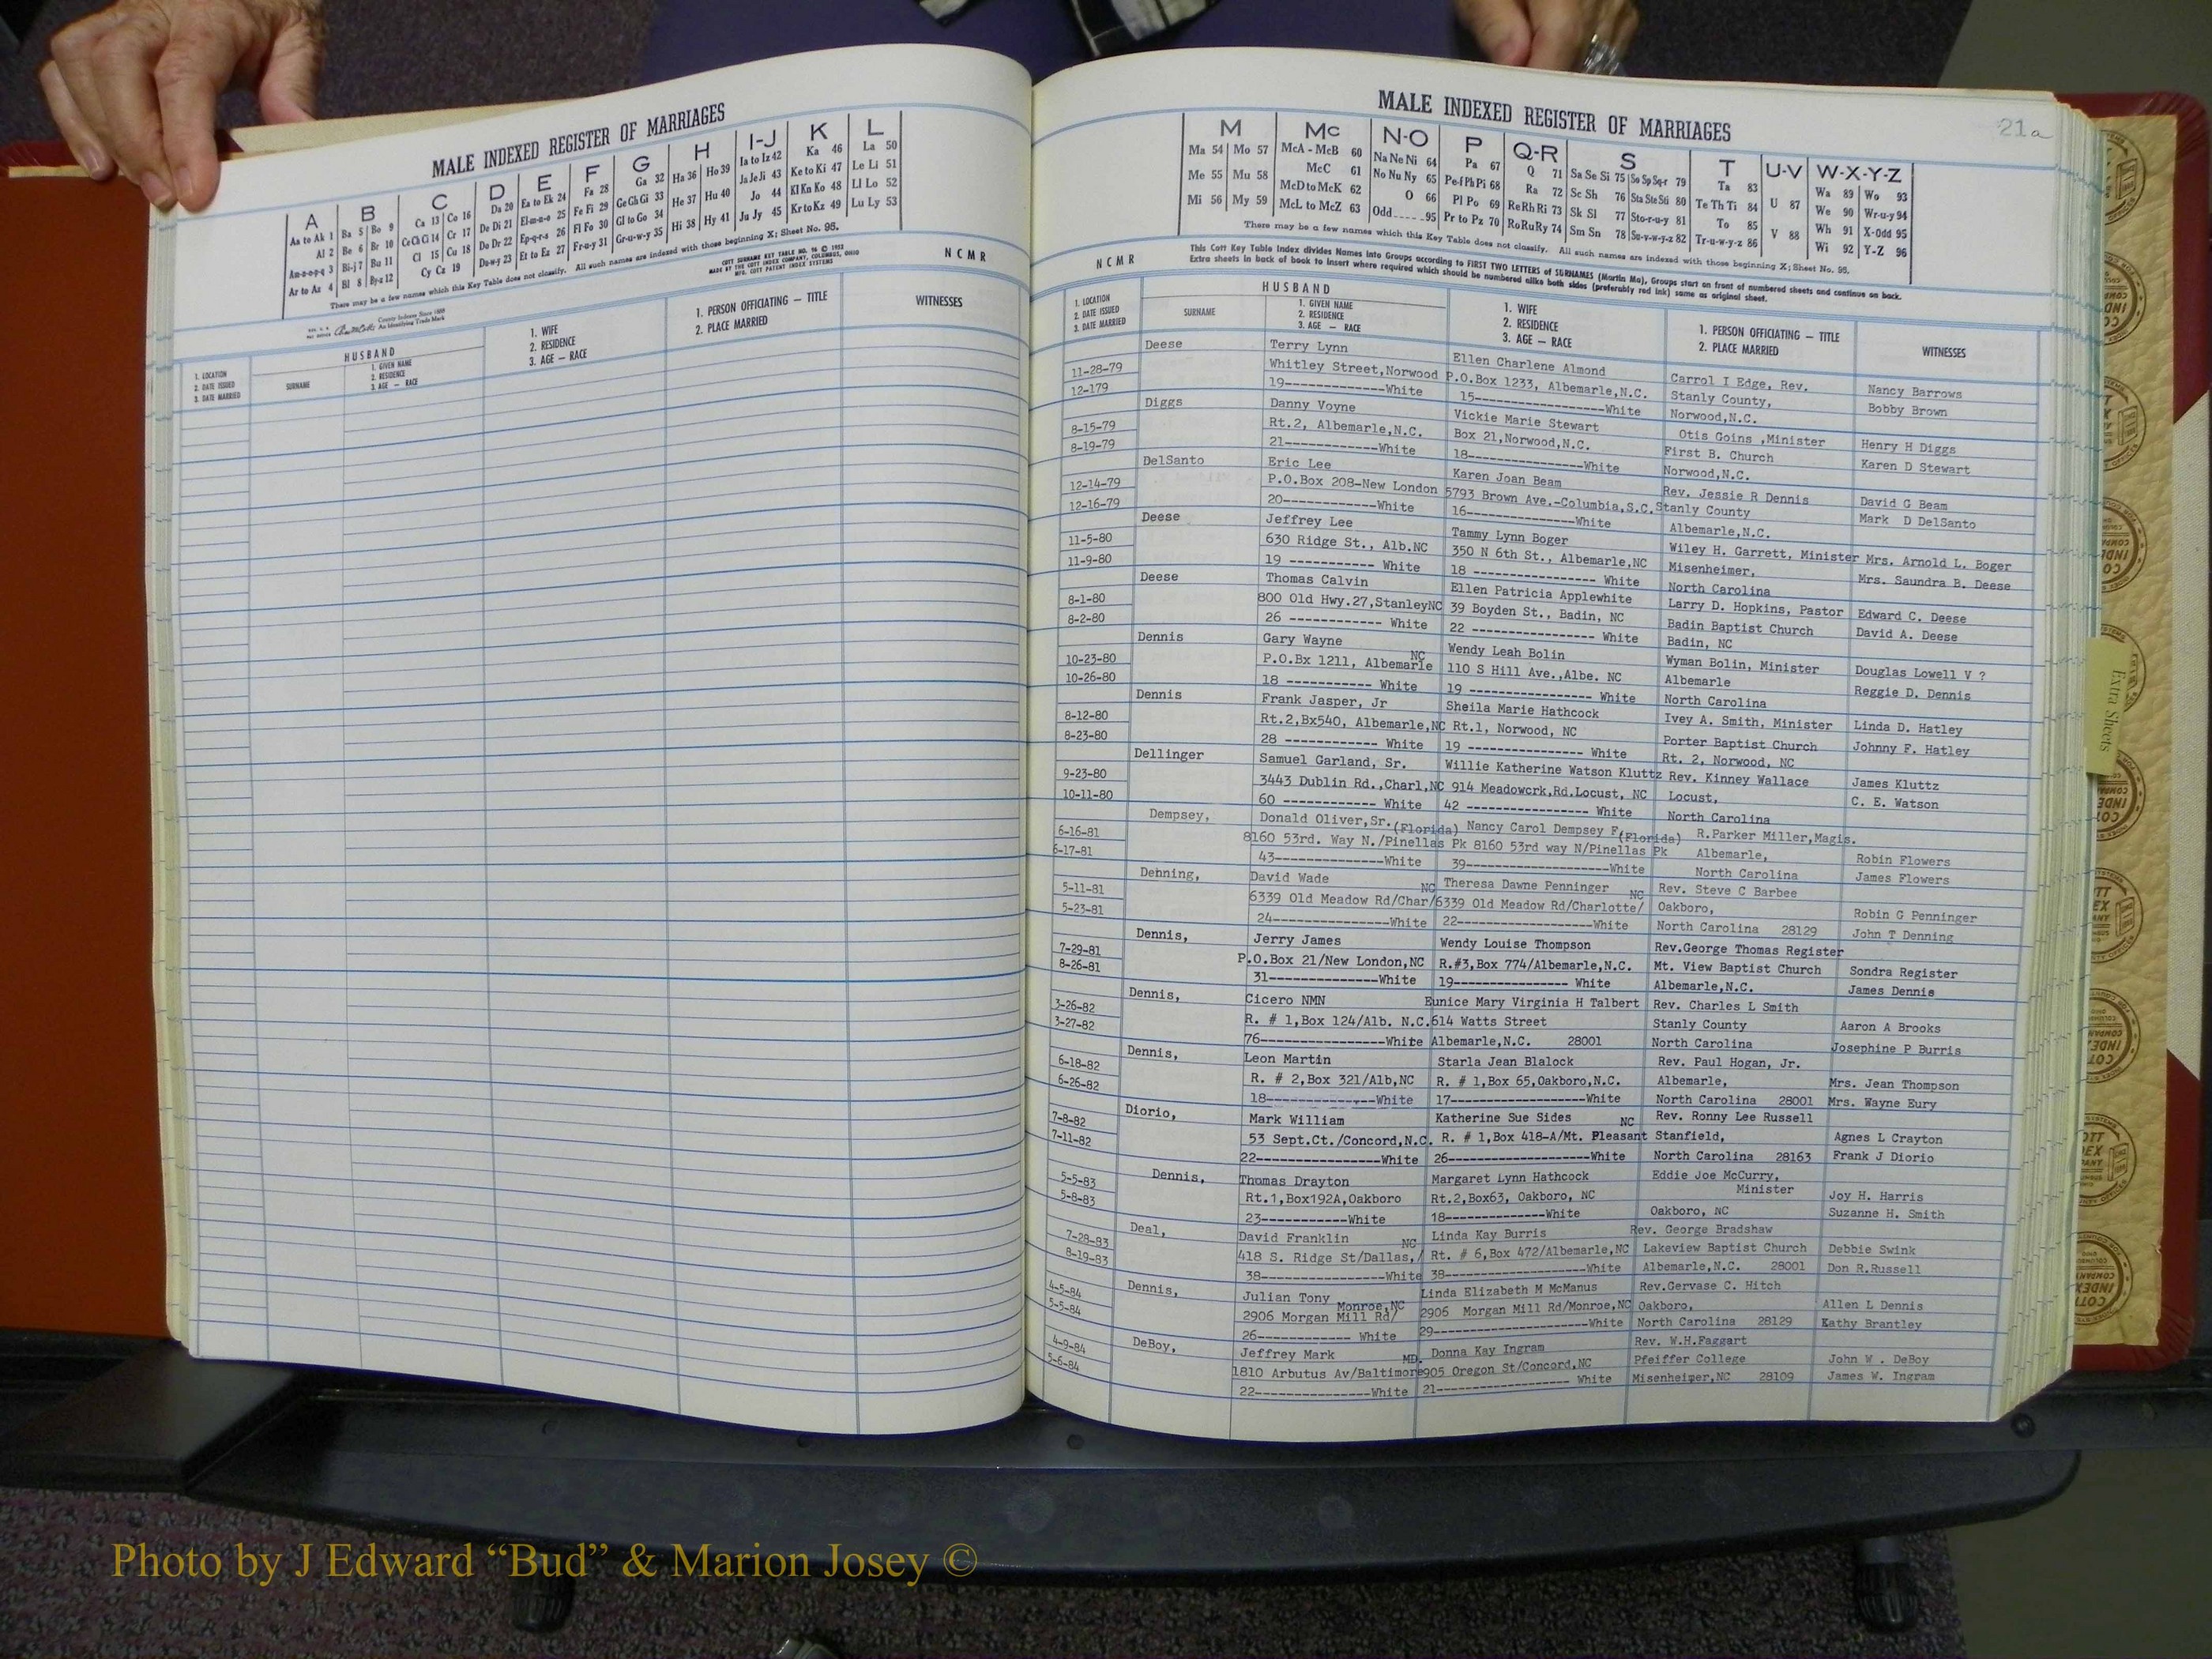 MALE INDEXED REGISTER OF MARRIAGES
A B C D E F G H I-J K L
Aa to Ak 1 Ba 5 Bo 9 Ca 13 Co 16 Da 20 Ea to Ek 24 Fa 28 Ga 32 Ha 36 Ho 39 Ia to Iz 42 Ka 46 La 50
Al 2 Be 6 Br 10 Ce Ch Ci 14 Cr 17 De Di 21 El-m-n-o 25 Fe Fi 29 Ge Gh Gi 33 He 37 Hu 40 Ja Je Ji 43 Ke to Ki 47 Le Li 51
Am-n-o-p-q 3 Bi-j 7 Bu 11 Cl 15 Cu 18 Do Dr 22 Ep-q-r-s 26 Fl Fo 30 Gl to Go 34 Hi 38 Hy 41 Jo 44 Kl Kn Ko 48 Ll Lo 52
Ar to Az 4 Bl 8 By-z 12 Cy Cz 19 Du-w-y 23 Et to Ez 27 Fr-u-y 31 Gr-u-w-y 35 Ju Jy 45 Kr to Kz 49 Lu Ly 53
There may be a few names which this Key Table does not classify. All such names are indexed with those beginning X; Sheet No. 95.
County Indexes Since 1888
An Identifying Trade Mark
COTT SURNAME KEY TABLE NO. 96 © 1952
MADE BY THE COTT INDEX COMPANY, COLUMBUS, OHIO
MFG. COTT PATENT INDEX SYSTEMS
N C M R
1. LOCATION
2. DATE ISSUED
3. DATE MARRIED
HUSBAND
SURNAME
1. GIVEN NAME
2. RESIDENCE
3. AGE — RACE
1. WIFE
2. RESIDENCE
3. AGE — RACE
1. PERSON OFFICIATING — TITLE
2. PLACE MARRIED
WITNESSES
MALE INDEXED REGISTER OF MARRIAGES
21a
M Mc N-O P Q-R S T U-V W-X-Y-Z
Ma 54 Mo 57 McA - McB 60 Na Ne Ni 64 Pa 67 Q 71 Sa Se Si 75 So Sp Sq-r 79 Ta 83 U 87 Wa 89 Wo 93
Me 55 Mu 58 McC 61 No Nu Ny 65 Pe-f Ph Pi 68 Ra 72 Sc Sh 76 Sta Ste Sti 80 Te Th Ti 84 V 88 We 90 Wr-u-y 94
Mi 56 My 59 McD to McK 62 O 66 Pl Po 69 Re Rh Ri 73 Sk Sl 77 Sto-r-u-y 81 To 85 Wh 91 X-Odd 95
McL to McZ 63 Odd 95 Pr to Pz 70 Ro Ru Ry 74 Sm Sn 78 Su-v-w-y-z 82 Tr-u-w-y-z 86 Wi 92 Y-Z 96
There may be a few names which this Key Table does not classify. All such names are indexed with those beginning X; Sheet No. 95.
This Cott Key Table Index divides Names into Groups according to FIRST TWO LETTERS of SURNAMES (Martin Ma), Groups start on front of numbered sheets and continue on back.
Extra sheets in back of book to insert where required which should be numbered alike both sides (preferably red ink) same as original sheet.
N C M R
1. LOCATION
2. DATE ISSUED
3. DATE MARRIED
HUSBAND
SURNAME
1. GIVEN NAME
2. RESIDENCE
3. AGE — RACE
1. WIFE
2. RESIDENCE
3. AGE — RACE
1. PERSON OFFICIATING — TITLE
2. PLACE MARRIED
WITNESSES
Deese Terry Lynn Ellen Charlene Almond Carrol I Edge, Rev. Nancy Barrows
11-28-79 Whitley Street,Norwood P.O.Box 1233, Albemarle,N.C. Stanly County, Bobby Brown
12-179 19-------------White 15------------------White Norwood,N.C.
Diggs Danny Voyne Vickie Marie Stewart Otis Goins ,Minister Henry H Diggs
8-15-79 Rt.2, Albemarle,N.C. Box 21,Norwood,N.C. First B. Church Karen D Stewart
8-19-79 21------------White 18-------------White Norwood,N.C.
DelSanto Eric Lee Karen Joan Beam Rev. Jessie R Dennis David G Beam
12-14-79 P.O.Box 208-New London 5793 Brown Ave.-Columbia,S.C. Stanly County Mark D DelSanto
12-16-79 20------------White 16-------------White Albemarle,N.C.
Deese Jeffrey Lee Tammy Lynn Boger Wiley H. Garrett, Minister Mrs. Arnold L. Boger
11-5-80 630 Ridge St., Alb.NC 350 N 6th St., Albemarle,NC Misenheimer, Mrs. Saundra B. Deese
11-9-80 19 ----------- White 18 ---------------- White North Carolina
Deese Thomas Calvin Ellen Patricia Applewhite Larry D. Hopkins, Pastor Edward C. Deese
8-1-80 800 Old Hwy.27,StanleyNC 39 Boyden St., Badin, NC Badin Baptist Church David A. Deese
8-2-80 26 ------------ White 22 ---------------- White Badin, NC
Dennis Gary Wayne Wendy Leah Bolin Wyman Bolin, Minister Douglas Lowell V ?
10-23-80 P.O.Bx 1211, Albemarle NC 110 S Hill Ave.,Albe. NC Albemarle Reggie D. Dennis
10-26-80 18 ----------- White 19 ---------------- White North Carolina
Dennis Frank Jasper, Jr Sheila Marie Hathcock Ivey A. Smith, Minister Linda D. Hatley
8-12-80 Rt.2,Bx540, Albemarle,NC Rt.1, Norwood, NC Porter Baptist Church Johnny F. Hatley
8-23-80 28 ------------ White 19 --------------- White Rt. 2, Norwood, NC
Dellinger Samuel Garland, Sr. Willie Katherine Watson Kluttz Rev. Kinney Wallace James Kluttz
9-23-80 3443 Dublin Rd.,Charl,NC 914 Meadowcrk,Rd.Locust, NC Locust, C. E. Watson
10-11-80 60 ------------ White 42 ---------------- White North Carolina
Dempsey, Donald Oliver,Sr. (Florida) Nancy Carol Dempsey F (Florida) R.Parker Miller,Magis.
6-16-81 8160 53rd. Way N./Pinellas Pk 8160 53rd way N/Pinellas Pk Albemarle, Robin Flowers
6-17-81 43--------------White 39---------------White North Carolina James Flowers
Denning, David Wade NC Theresa Dawne Penninger NC Rev. Steve C Barbee
5-11-81 6339 Old Meadow Rd/Char/ 6339 Old Meadow Rd/Charlotte/ Oakboro, Robin G Penninger
5-23-81 24---------------White 22-----------------White North Carolina 28129 John T Denning
Dennis, Jerry James Wendy Louise Thompson Rev.George Thomas Register
7-29-81 P.O.Box 21/New London,NC R.#3,Box 774/Albemarle,N.C. Mt. View Baptist Church Sondra Register
8-26-81 31--------------White 19---------------- White Albemarle,N.C. James Dennis
Dennis, Cicero NMN Eunice Mary Virginia H Talbert Rev. Charles L Smith
3-26-82 R. # 1,Box 124/Alb. N.C. 614 Watts Street Stanly County Aaron A Brooks
3-27-82 76----------------White Albemarle,N.C. 28001 North Carolina Josephine P Burris
Dennis, Leon Martin Starla Jean Blalock Rev. Paul Hogan, Jr.
6-18-82 R. # 2,Box 321/Alb,NC R. # 1,Box 65,Oakboro,N.C. Albemarle, Mrs. Jean Thompson
6-26-82 18--------------White 17------------------White North Carolina 28001 Mrs. Wayne Eury
Diorio, Mark William Katherine Sue Sides NC Rev. Ronny Lee Russell
7-8-82 53 Sept.Ct./Concord,N.C. R. # 1,Box 418-A/Mt. Pleasant Stanfield, Agnes L Crayton
7-11-82 22----------------White 26------------------White North Carolina 28163 Frank J Diorio
Dennis, Thomas Drayton Margaret Lynn Hathcock Eddie Joe McCurry,
5-5-83 Rt.1,Box192A,Oakboro Rt.2,Box63, Oakboro, NC Minister Joy H. Harris
5-8-83 23-----------White 18-------------White Oakboro, NC Suzanne H. Smith
Deal, David Franklin NC Linda Kay Burris Rev. George Bradshaw
7-28-83 418 S. Ridge St/Dallas,/ Rt. # 6,Box 472/Albemarle,NC Lakeview Baptist Church Debbie Swink
8-19-83 38----------------White 38------------------White Albemarle,N.C. 28001 Don R.Russell
Dennis, Julian Tony Linda Elizabeth M McManus Rev.Gervase C. Hitch
4-5-84 2906 Morgan Mill Rd/ Monroe,NC 2906 Morgan Mill Rd/Monroe,NC Oakboro, Allen L Dennis
5-5-84 26------------ White 29------------------White North Carolina 28129 Kathy Brantley
DeBoy, Jeffrey Mark MD. Donna Kay Ingram Rev. W.H.Faggart
4-9-84 1810 Arbutus Av/Baltimore 905 Oregon St/Concord,NC Pfeiffer College John W . DeBoy
5-6-84 22---------------White 21----------------- White Misenheimer,NC 28109 James W. Ingram
Extra Sheets
Photo by J Edward “Bud” & Marion Josey ©